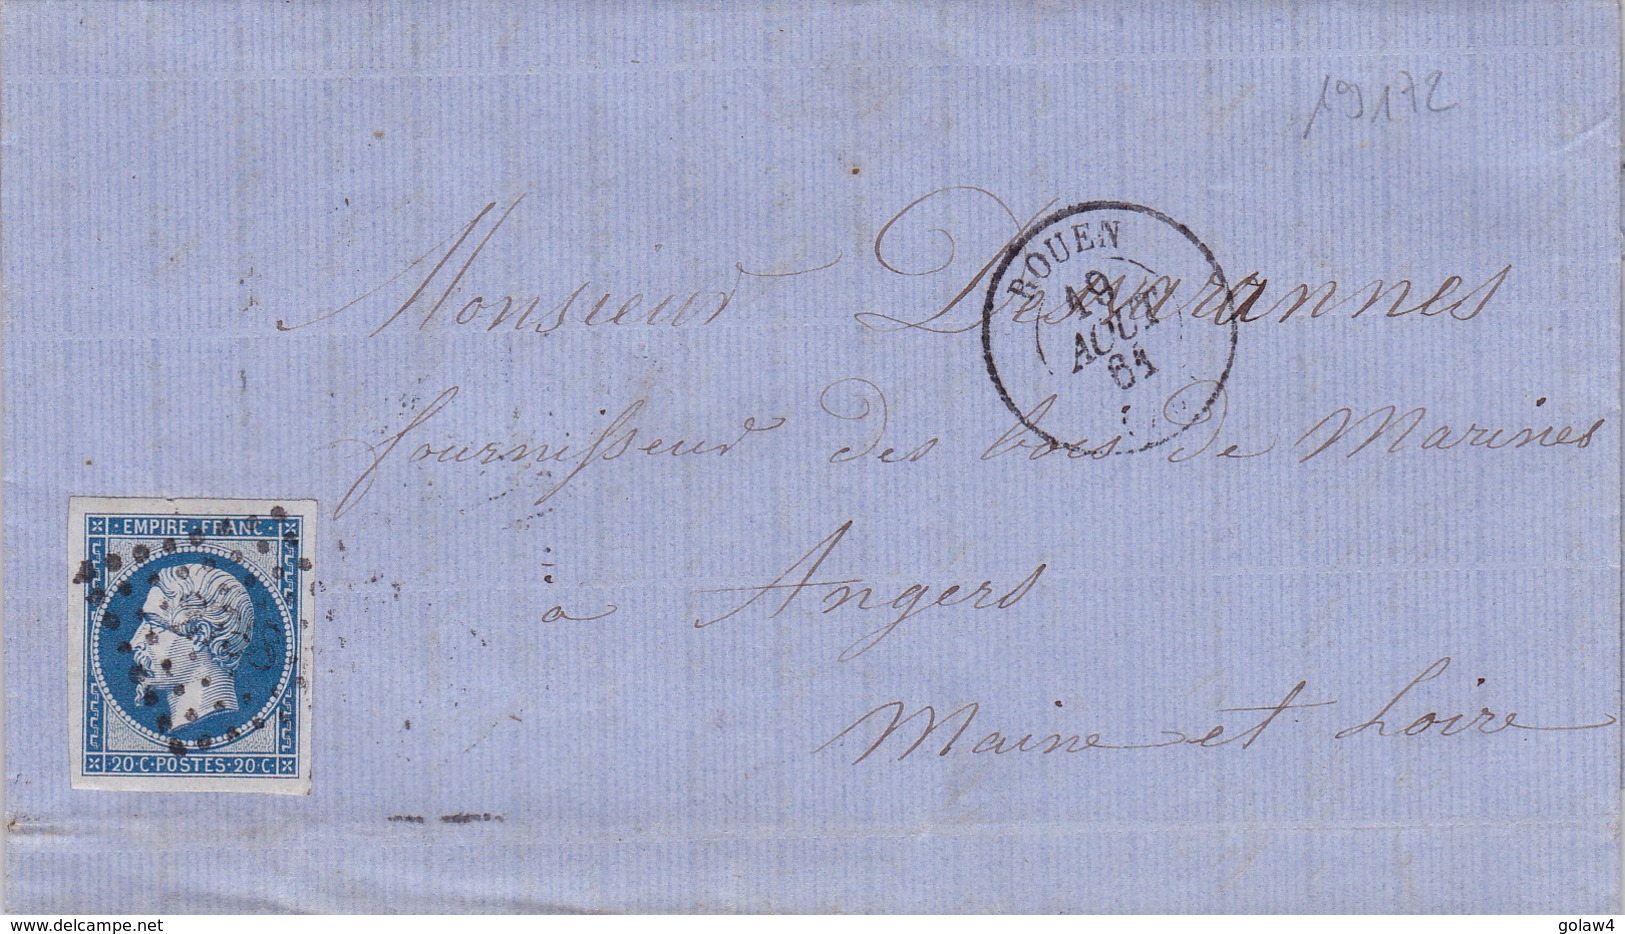 19172
Monsieur Desvarannes
ROUEN
19
AOUT
61
fournisseur des bois de Marines
à Angers
Maine et Loire
EMPIRE·FRANC·
20·C·POSTES·20·C·
delcampe.net
golaw4